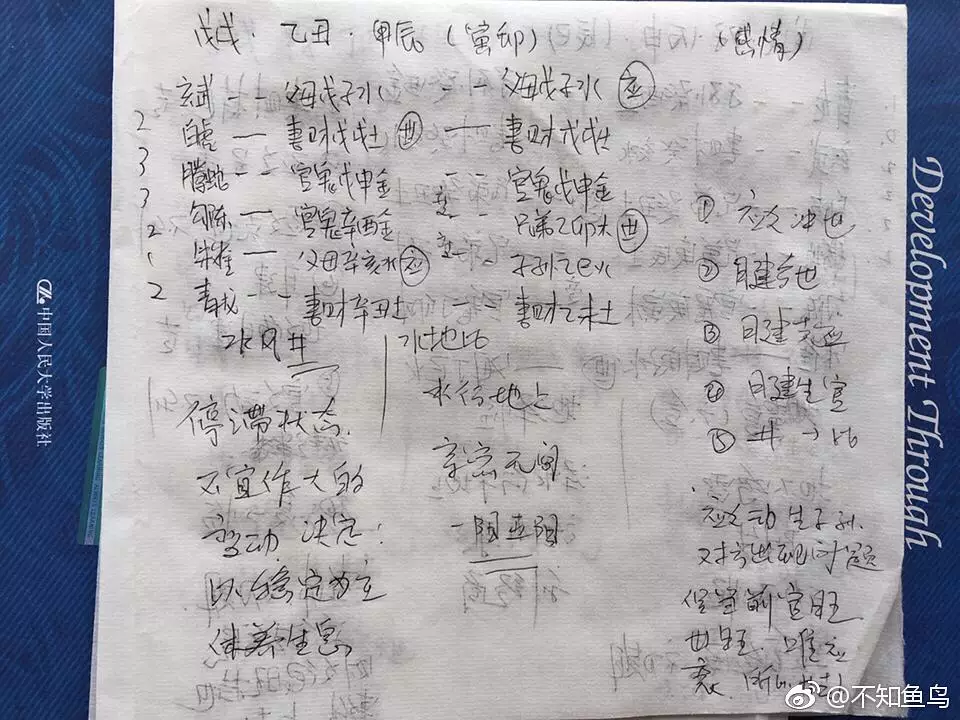 戊戌·乙丑·甲辰(寅卯) (感情)
玄武 -- 父母戊子水 -- 父母戊子水 应
2 白虎 — 妻财戊戌土 世 — 妻财戊戌土
3 腾蛇 -- 官鬼戊申金 -- 官鬼戊申金
3 勾陈 — 官鬼辛酉金 -- 兄弟乙卯木 世
2 朱雀 — 父母辛亥水 应 -- 子孙乙巳火
1
2 青龙 -- 妻财辛丑土 — 妻财乙未土
水风井
水地比
停滞状态.
不宜作大的
变动 决定:
以稳定为主
休养生息
水行地上
亲密无间
一阳五阴
① 应爻冲世
② 日建合世
③ 日建克应
④ 日建生官
⑤ 井→比
应爻动生子孙.
对方出现问题
但当前官旺
世旺. 唯应
衰.
中国人民大学出版社
Development Through
@不知鱼鸟